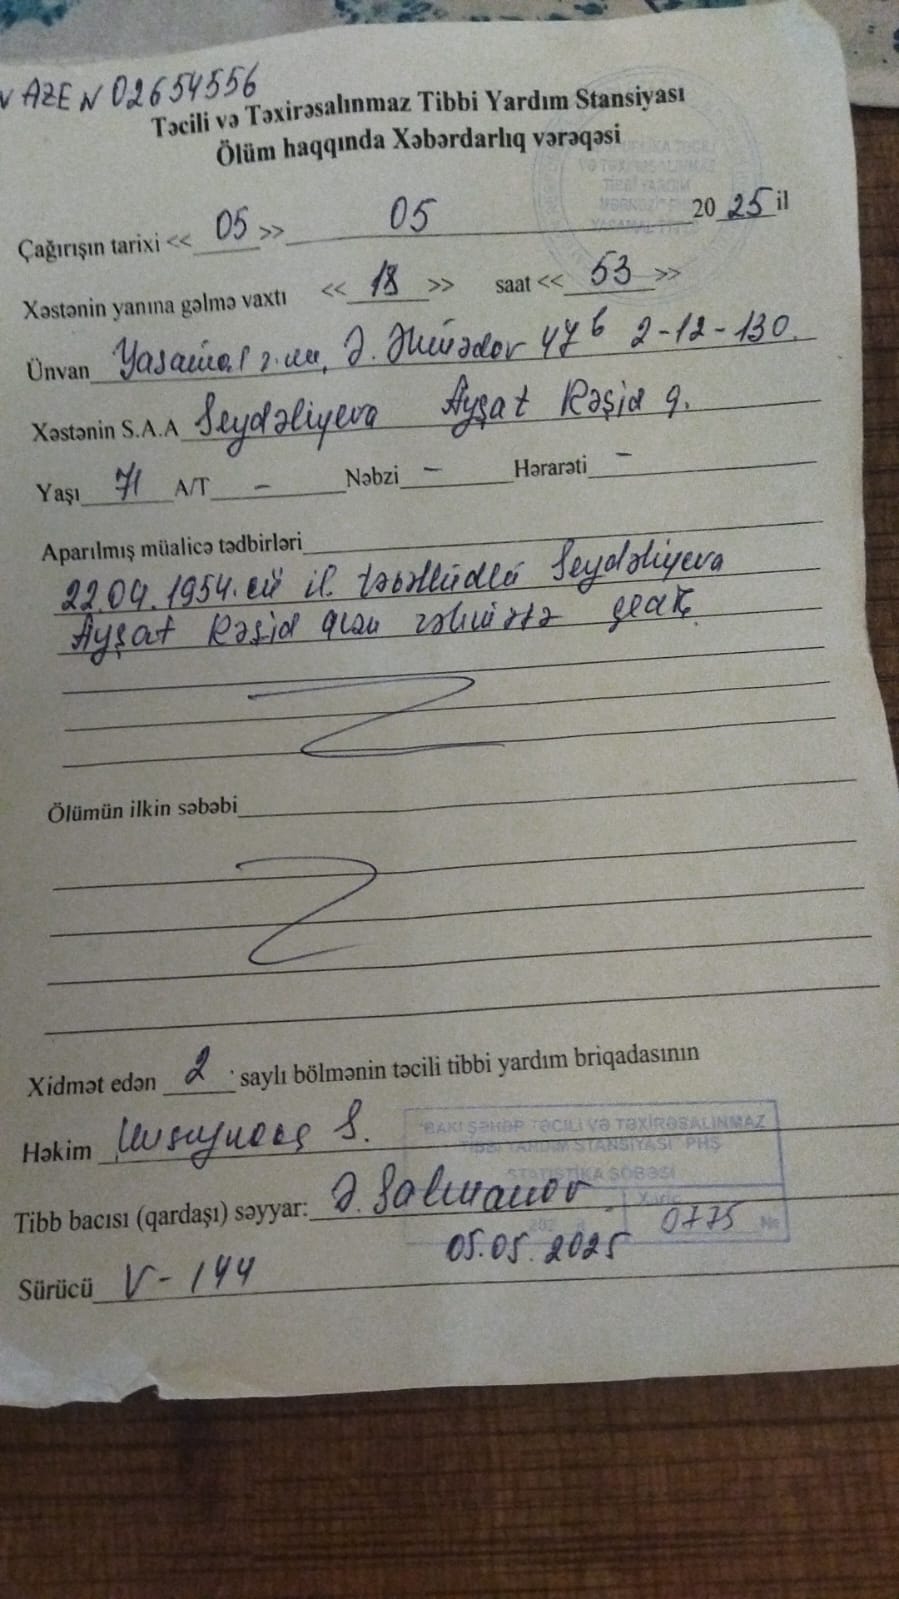 AZE N 02654556
Təcili və Təxirəsalınmaz Tibbi Yardım Stansiyası
Ölüm haqqında Xəbərdarlıq vərəqəsi
Çağırışın tarixi << 05 >> 05 20 25 il
Xəstənin yanına gəlmə vaxtı << 18 >> saat << 53 >>
Ünvan Yasamal 47b 2-12-130.
Xəstənin S.A.A Seydəliyeva Ayşat Rəşid q.
Yaşı 71 A/T - Nəbzi - Hərarəti -
Aparılmış müalicə tədbirləri
22.04.1954.cü il təvəllüdlü Seydəliyeva
Ayşat Rəşid qızı
Ölümün ilkin səbəbi
Xidmət edən 2 saylı bölmənin təcili tibbi yardım briqadasının
Həkim S.
BAKI ŞƏHƏR TƏCİLİ VƏ TƏXİRƏSALINMAZ
TİBBİ YARDIM STANSİYASI PHŞ
STATİSTİKA ŞÖBƏSİ
Tibb bacısı (qardaşı) səyyar: Ə. Salmanov
0775 №
05.05.2025
Sürücü V-144